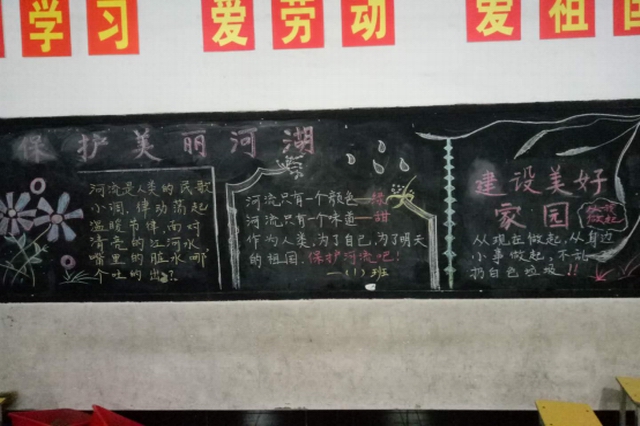 学习
爱劳动
爱祖国
保护美丽河湖
河流是人类的民歌
小调,律动荡起
温暖节律,面对
清亮的江河水
嘴里的脏水哪
个吐的出?
河流只有一个颜色—绿
河流只有一个味道—甜
作为人类,为了自己,为了明天
的祖国,保护河流吧!
一(1)班
建设美好
家园
从现在做起,从身边
小事做起,不乱
扔白色垃圾!!